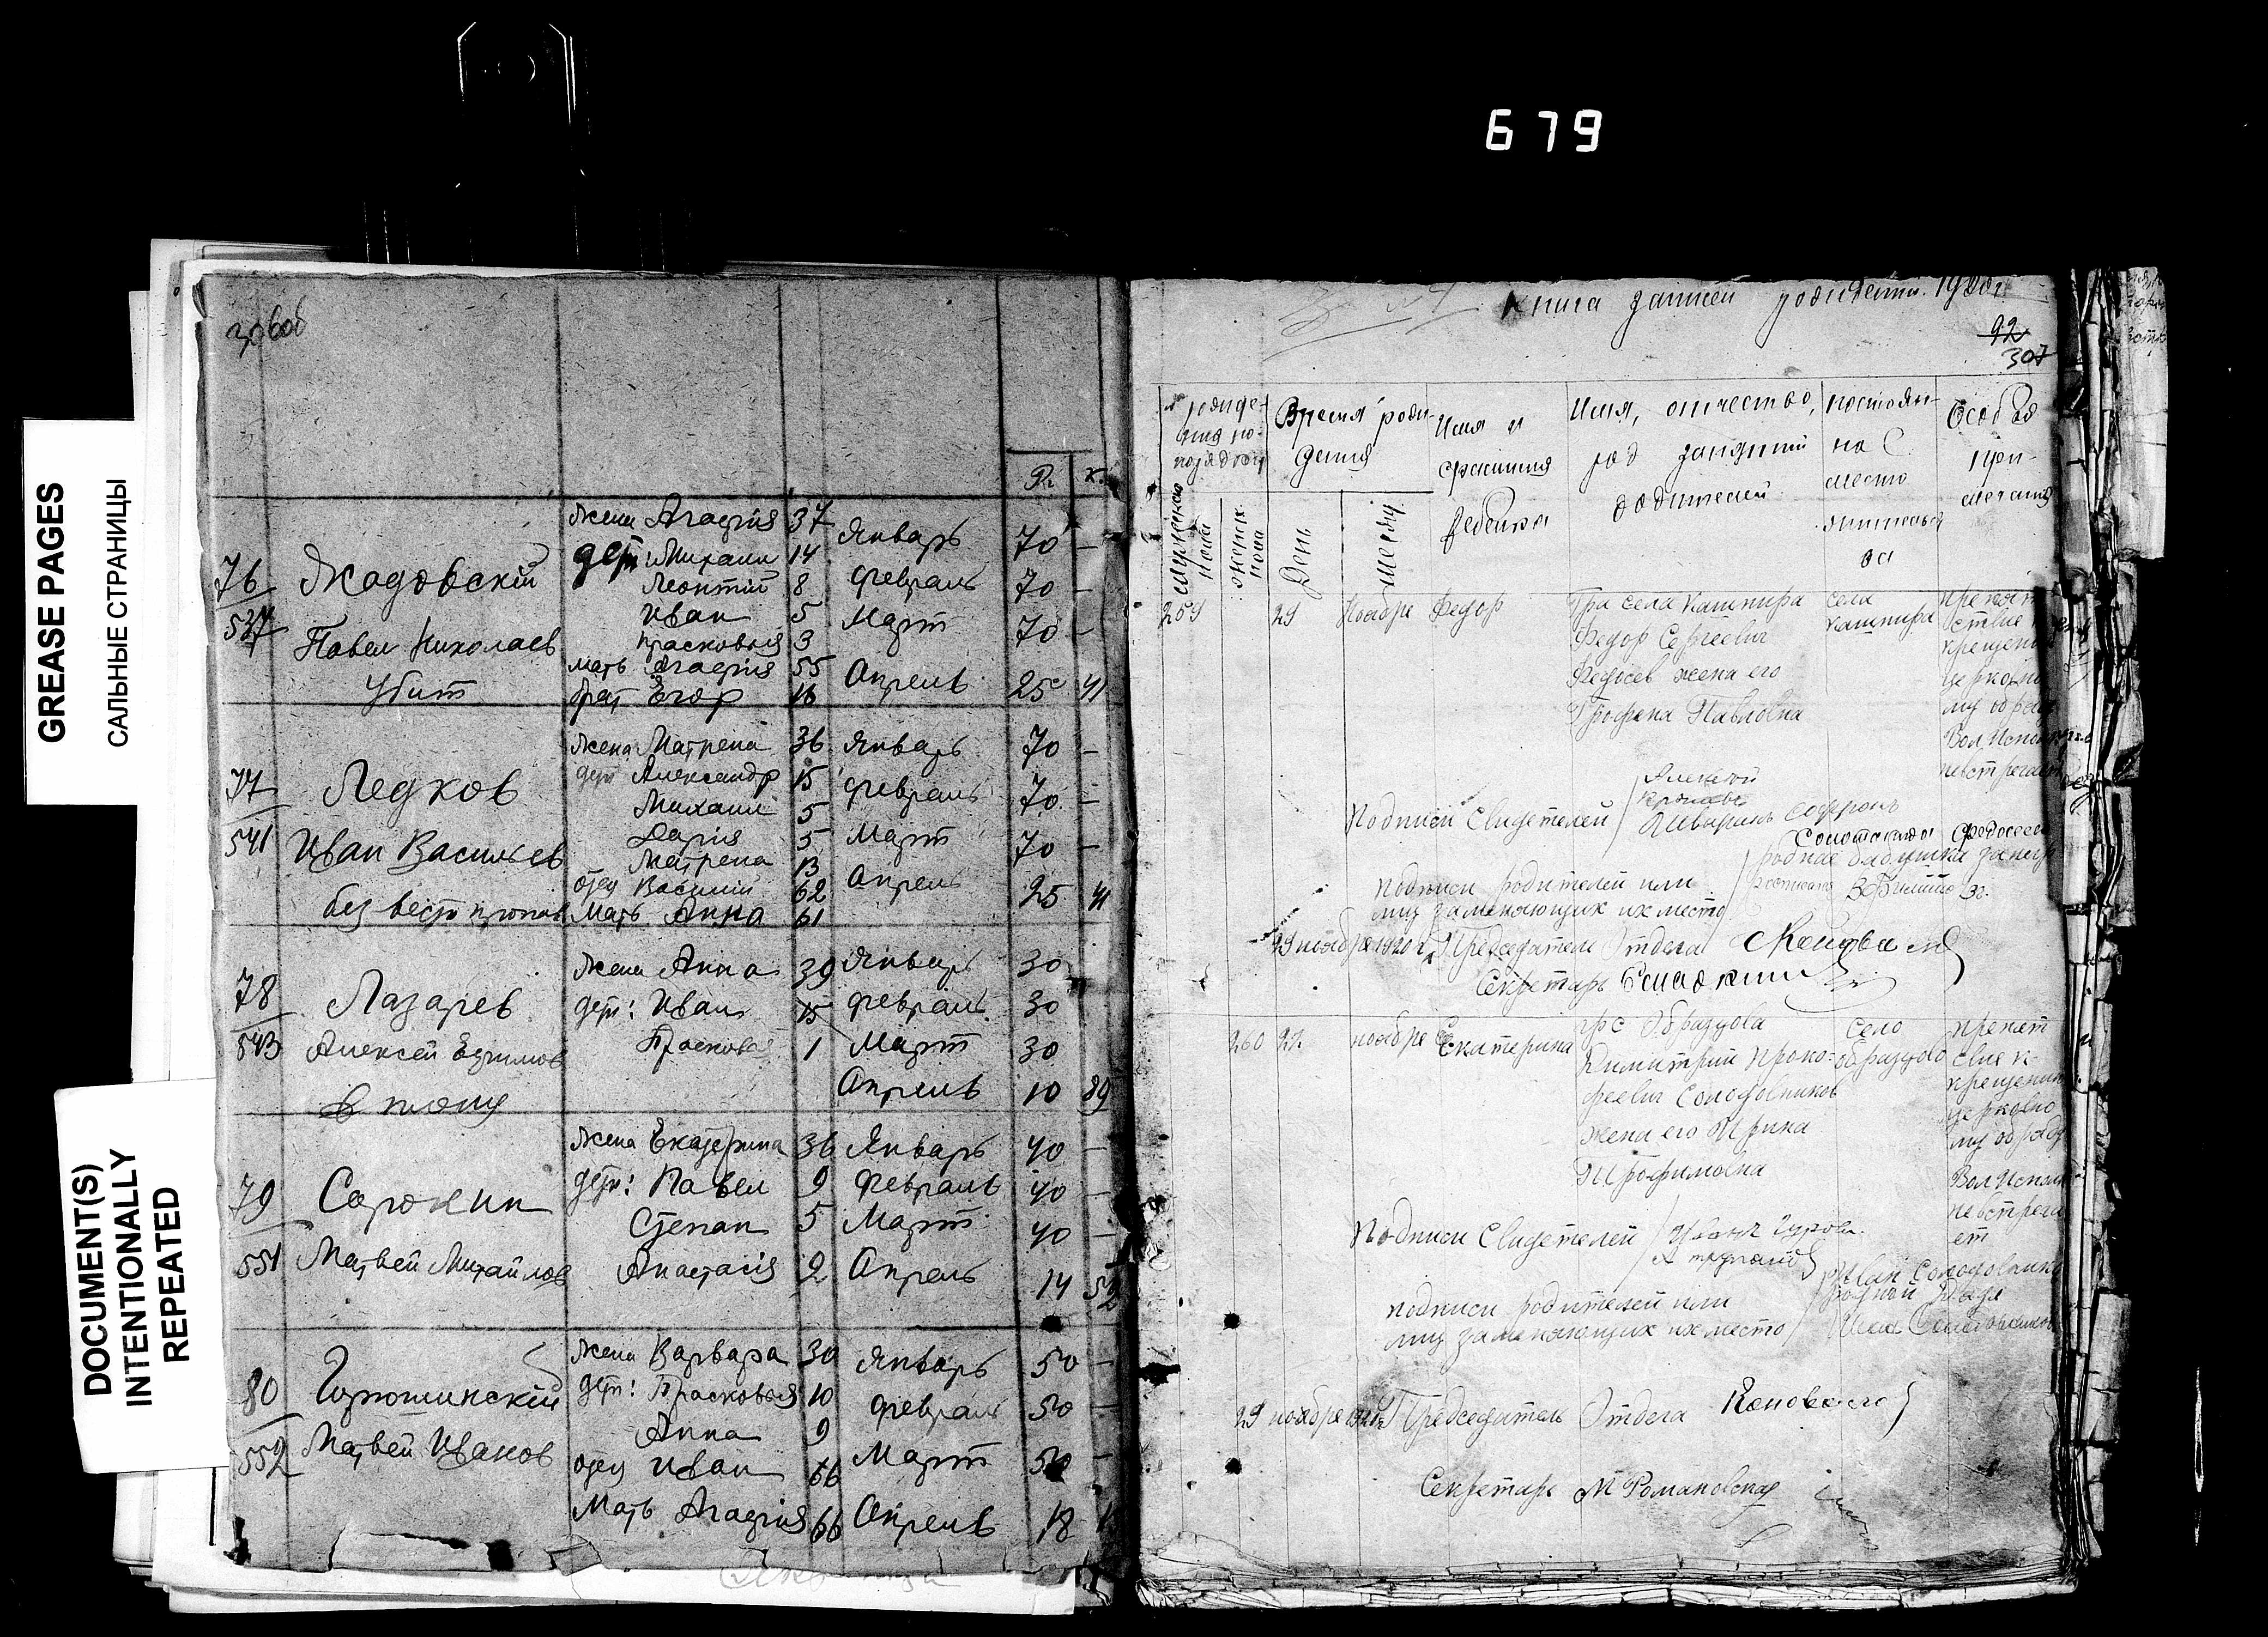 679
GREASE PAGES
САЛЬНЫЕ СТРАНИЦЫ
DOCUMENT(S)
INTENTIONALLY
REPEATED
306об
Р. к.
76
537
Жадовскій
Павел Николаев
убит
жена Агафия 37 Январь 70 —
дети: Михаил 14
Леонтий 8 февраль 70 —
Иван 5 Март 70 —
Прасковья 3
мать Агафия 55 Апрель 25 41
брат Егор 16
77
541
Ледков
Иван Васильев
без вести пропав
жена Матрена 36 Январь 70 —
дети Александр 15 февраль 70 —
Михаил 5
Дария 5 Март 70 —
Матрена 13
отец Василий 62 Апрель 25 41
Мать Анна 61
78
543
Лазарев
Алексей Ефимов
в плену
жена Анна 39 Январь 30
дети: Иван 15 февраль 30
Прасковья 1 Март 30
Апрель 10 89
79
551
Сорокин
Матвей Михайлов
жена Екатерина 36 Январь 40 —
дети: Павел 9 февраль 40 —
Степан 5 Март 40 —
Анастасія 2 Апрель 14 52
80
552
Матвей Иванов
жена Варвара 30 Январь 50 —
дети: Прасковья 10 февраль 50 —
Анна 9
отец Иван 66 Март 50 —
Мать Агафия 66 Апрель 18
Книга записей 1920 г.
92
307
Время рождения
Имя и фамилия ребенка
Имя, отчество, род занятий родителей
постоянное место жительства
Особые примечания
мужского пола
женского пола
День
Месяц
259 29 Ноября Федор
Гр. села Кашпира
Федор Сергеевич
Федосев жена его
Грофена Павловна
села Кашпира
препятствие к крещению церковному обряду Вол. Исполком невстречает
Подписи Свидетелей
Подписи родителей или
лиц заменяющих их место
родная бабушка
29 ноября 1920 г. Председатель Отдела
Секретарь
260 22 ноября Екатерина
гр с Образцова
Димитрий Проко-
феевич Солодовников
жена его Ирина
Трофимовна
село Образцово
препятствие к крещению церковному обряду Вол Исполком невстречает
Подписи Свидетелей
Подписи родителей или
лиц заменяющих их место
Иван Солодовников
родной дядя
29 ноября Председатель Отдела
Секретарь М Романовская